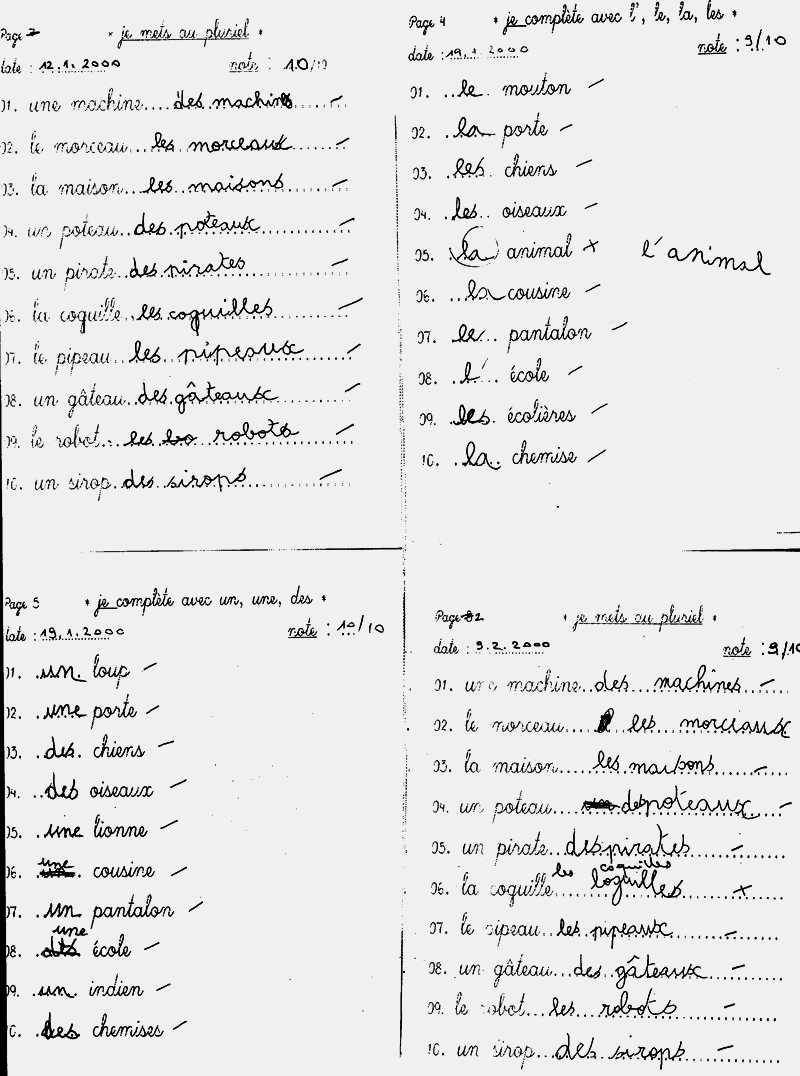 Page 7 * je mets au pluriel *
date : 12.1.2000 note : 10/10
01. une machine.... des machines
02. le morceau... les morceaux
03. la maison... les maisons
04. un poteau.. des poteaux
05. un pirate. des pirates
06. la coquille.. les coquilles
07. le pipeau.. les pipeaux
08. un gâteau.. des gâteaux
09. le robot... les bo robots
10. un sirop. des sirops
Page 4 * je complète avec l', le, la, les *
date : 19.1.2000 note : 9/10
01. ..le mouton
02. ..la porte
03. ..les. chiens
04. .les.. oiseaux
05. (la) animal x l'animal
06. ..la cousine
07. .le... pantalon
08. .l'... école
09. .les. écolières
10. ..la. chemise
Page 5 * je complète avec un, une, des *
date : 19.1.2000 note : 10/10
01. .un. loup
02. .une porte
03. .des. chiens
04. ..des oiseaux
05. .une lionne
06. une cousine
07. .un pantalon
08. une des école
09. .un. indien
10. .des chemises
Page 82 * je mets au pluriel *
date : 9.2.2000 note : 9/10
01. une machine..des machines
02. le morceau.... les morceaux
03. la maison.... les maisons
04. un poteau .... des poteaux
05. un pirate..des pirates
06. la coquille.. les coquilles loguilles x
07. le pipeau.. les pipeaux
08. un gâteau...des gâteaux
09. le robot...les robots
10. un sirop...des sirops